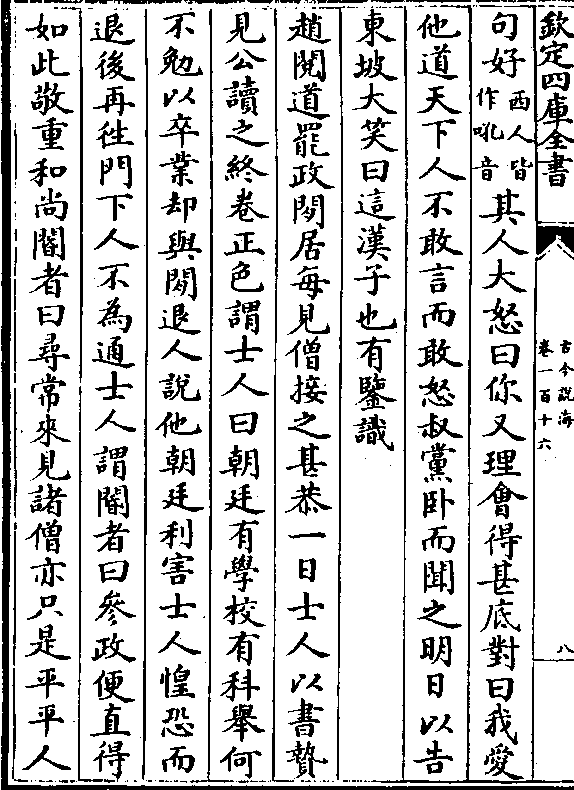 欽定四庫全書
古今說海
卷一百十六
八
句好西人皆作吼音其人大怒曰你又理會得甚底對曰我愛
他道天下人不敢言而敢怒叔黨卧而聞之明日以告
東坡大笑曰這漢子也有鑒識
趙閱道罷政閒居每見僧接之甚恭一日士人以書贄
見公讀之終卷正色謂士人曰朝廷有學校有科舉何
不勉以卒業却與閒退人說他朝廷利害士人惶恐而
退後再徃門下人不為通士人謂閽者曰參政便直得
如此敬重和尚閽者曰尋常來見諸僧亦只是平平人